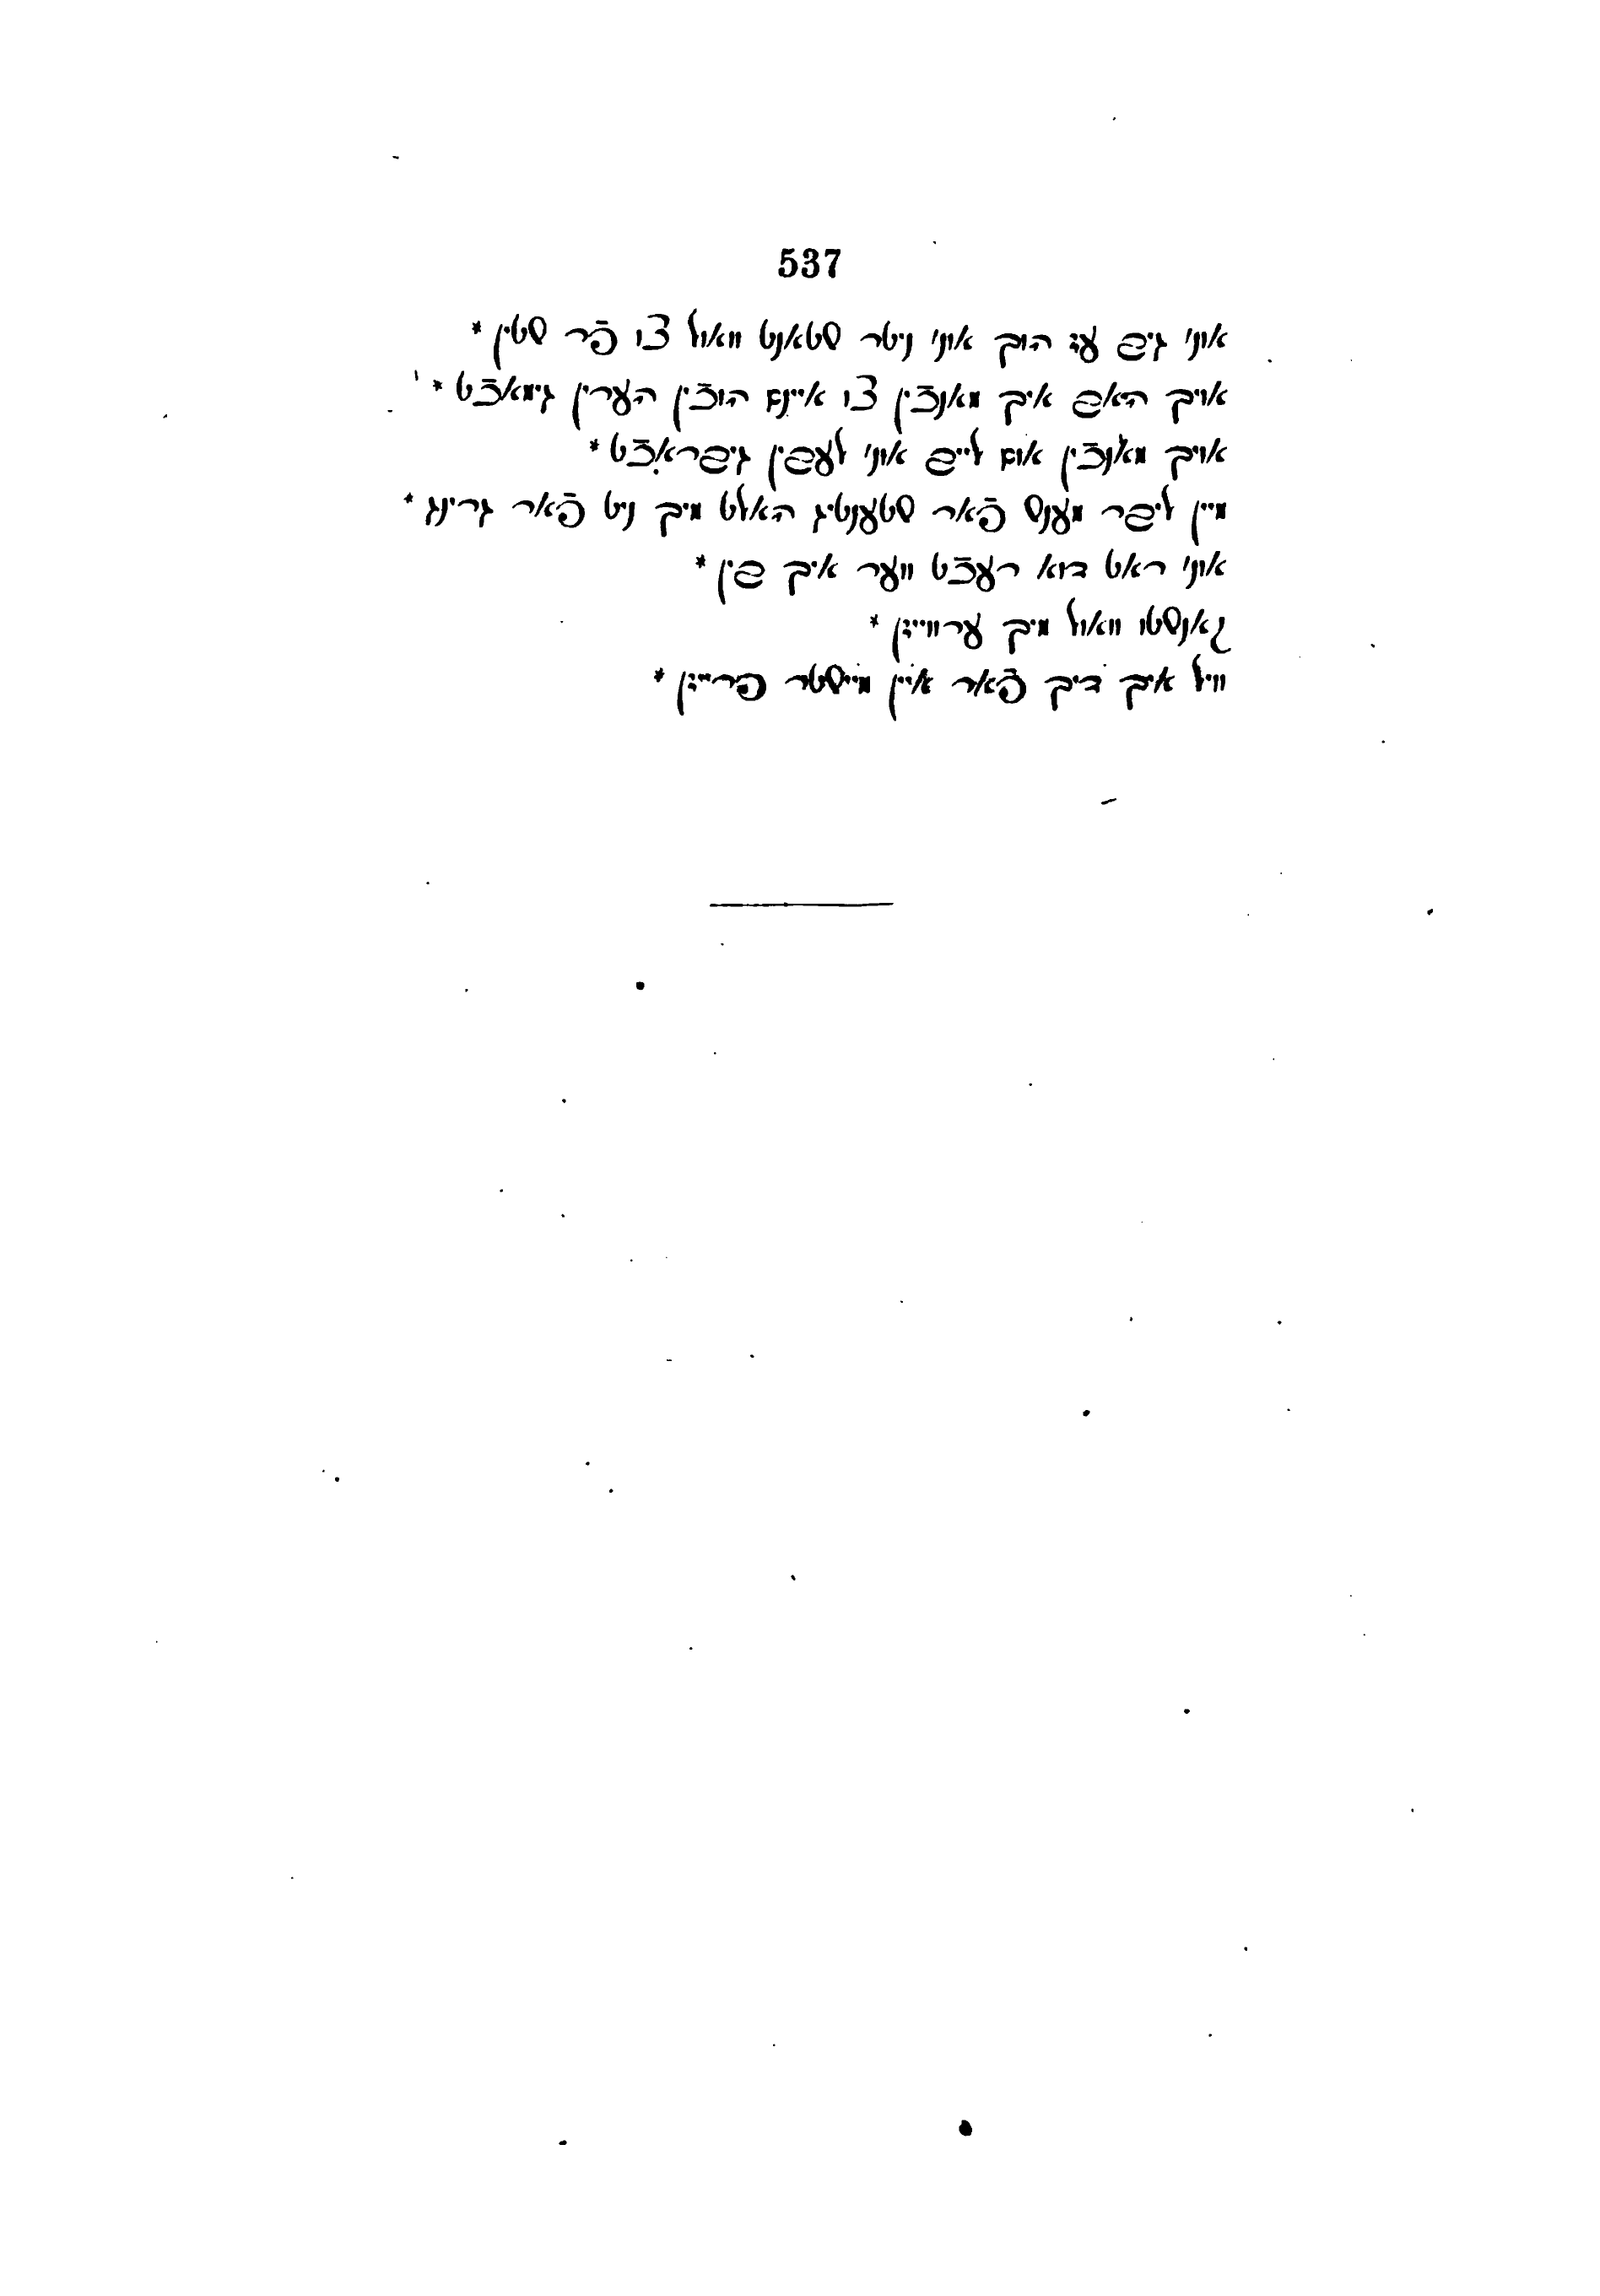 537
אוני גיב עז הוך אוני ניטר סטאנט וואול צו פֿר סטין *
אויך האב איך מאנכֿין צו איינם הוכֿין הערין גימאכֿט *
אויך מאנכֿין אום לייב אוני לעבין גיבראכֿט *
מיין ליבר מענס פֿאר סטענטיג האלט מיך ניט פֿאר גרינג *
אוני ראט דוא רעכֿט ווער איך בין *
קאנסטו וואול מיך ערווייזן *
וויל איך דיך פֿאר איין מייסטר פרייזן *